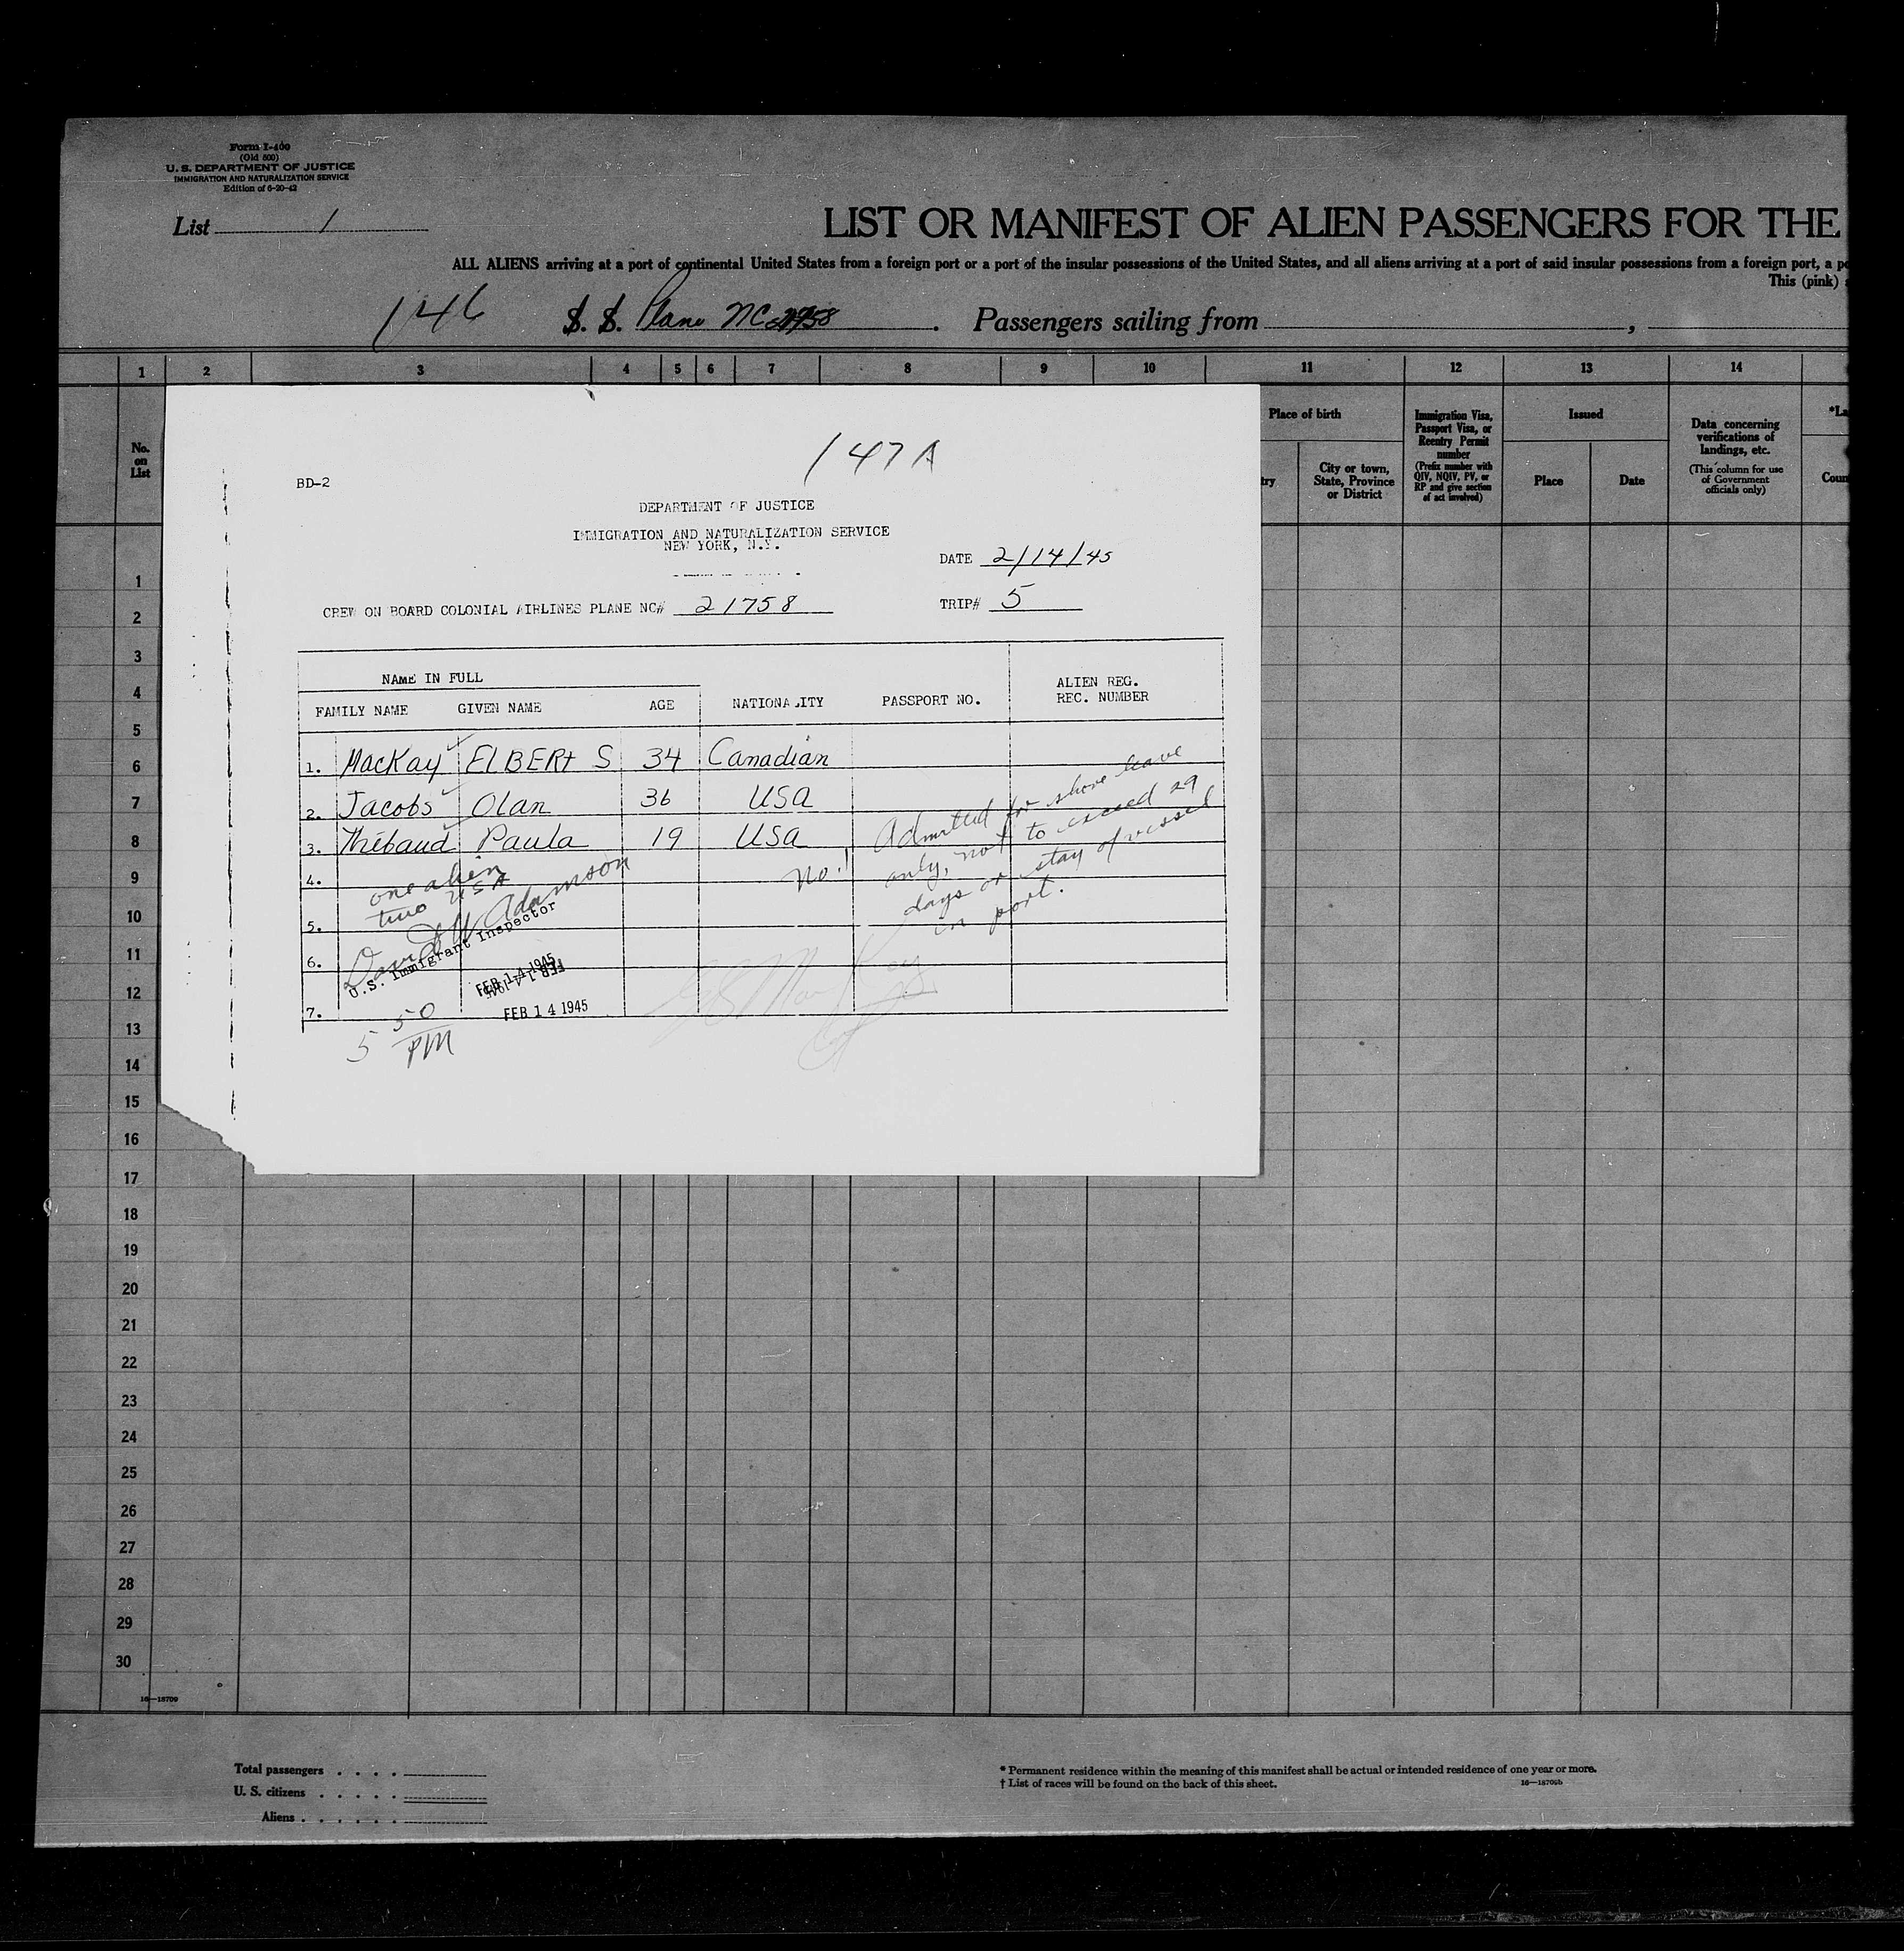 Form I-400
(Old 500)
U. S. DEPARTMENT OF JUSTICE
IMMIGRATION AND NATURALIZATION SERVICE
Edition of 6-20-42
List 1
LIST OR MANIFEST OF ALIEN PASSENGERS FOR THE
ALL ALIENS arriving at a port of continental United States from a foreign port or a port of the insular possessions of the United States, and all aliens arriving at a port of said insular possessions from a foreign port, a
This (pink)
146 S. S. Plane NC 21758 . Passengers sailing from ,
1 2 3 4 5 6 7 8 9 10 11 12 13 14
No. on List
Place of birth
City or town, State, Province or District
Immigration Visa, Passport Visa, or Reentry Permit number
(Prefix number with QIV, NQIV, PV, or RP and give section of act involved)
Issued
Place Date
Data concerning verifications of landings, etc.
(This column for use of Government officials only)
147 A
BD-2
DEPARTMENT OF JUSTICE
IMMIGRATION AND NATURALIZATION SERVICE
NEW YORK, N.Y.
DATE 2/14/45
CREW ON BOARD COLONIAL AIRLINES PLANE NC# 21758 TRIP# 5
NAME IN FULL
FAMILY NAME GIVEN NAME AGE NATIONALITY PASSPORT NO. ALIEN REG. REC. NUMBER
1. MacKay ELBERt S 34 Canadian
2. Jacobs Olan 36 USA
3. Thébaud Paula 19 USA
4.
5.
6.
7.
one alien
two USA
David W Adamson
U.S. Immigrant Inspector
FEB 14 1945
FEB 14 1945
FEB 14 1945
5 50 PM
No!
Admitted for shore leave
only, not to exceed 29
days or stay of vessel
in port.
ES MacKay
1
2
3
4
5
6
7
8
9
10
11
12
13
14
15
16
17
18
19
20
21
22
23
24
25
26
27
28
29
30
16—18709
Total passengers . . . .
U. S. citizens . . . . .
Aliens . . . . . .
* Permanent residence within the meaning of this manifest shall be actual or intended residence of one year or more.
† List of races will be found on the back of this sheet.
16—18709b